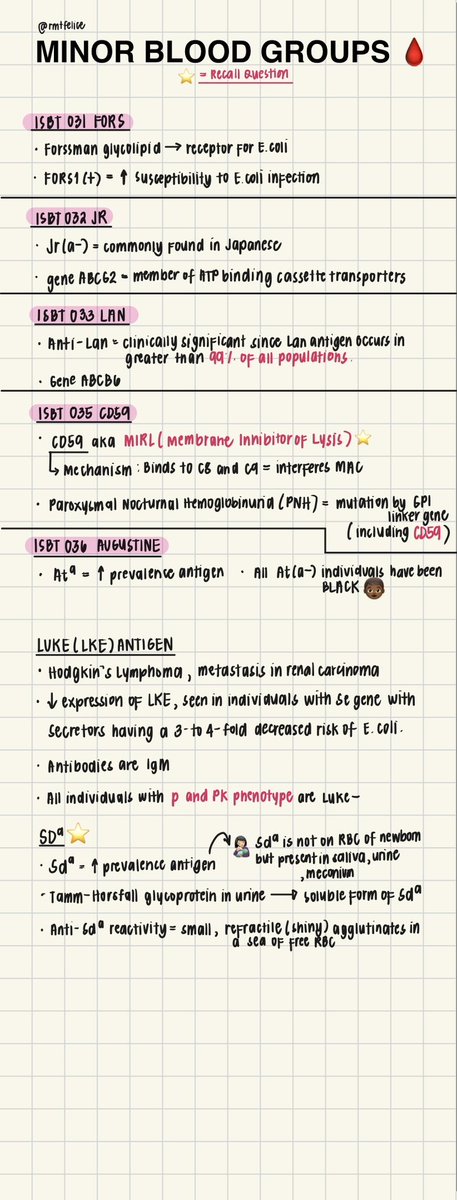 @rmtfelice
MINOR BLOOD GROUPS 🩸
⭐ = Recall Question
ISBT 031 FORS
· Forssman glycolipid → receptor for E.coli
· FORS1(+) = ↑ susceptibility to E.coli infection
ISBT 032 JR
· Jr(a-) = commonly found in Japanese
· gene ABCG2 = member of ATP binding cassette transporters
ISBT 033 LAN
· Anti-Lan = clinically significant since Lan antigen occurs in
greater than 99% of all populations.
· Gene ABCB6
ISBT 035 CD59
· CD59 aka MIRL (Membrane Inhibitor of Lysis) ⭐
↳ Mechanism: Binds to C8 and C9 = interferes MAC
· Paroxysmal Nocturnal Hemoglobinuria (PNH) = mutation by GPI
linker gene
(including CD59)
ISBT 036 AUGUSTINE
· Atᵃ = ↑ prevalence antigen · All At(a-) individuals have been
BLACK
LUKE (LKE) ANTIGEN
· Hodgkin's Lymphoma, metastasis in renal carcinoma
· ↓ expression of LKE, seen in individuals with Se gene with
secretors having a 3-to 4-fold decreased risk of E.coli.
· Antibodies are IgM
· All individuals with p and PK phenotype are Luke-
SDᵃ ⭐
· Sdᵃ = ↑ prevalence antigen
Sdᵃ is not on RBC of newborn
but present in saliva, urine
, meconium
· Tamm-Horsfall glycoprotein in urine → soluble form of Sdᵃ
· Anti-Sdᵃ reactivity = small, refractile (shiny) agglutinates in
a sea of free RBC